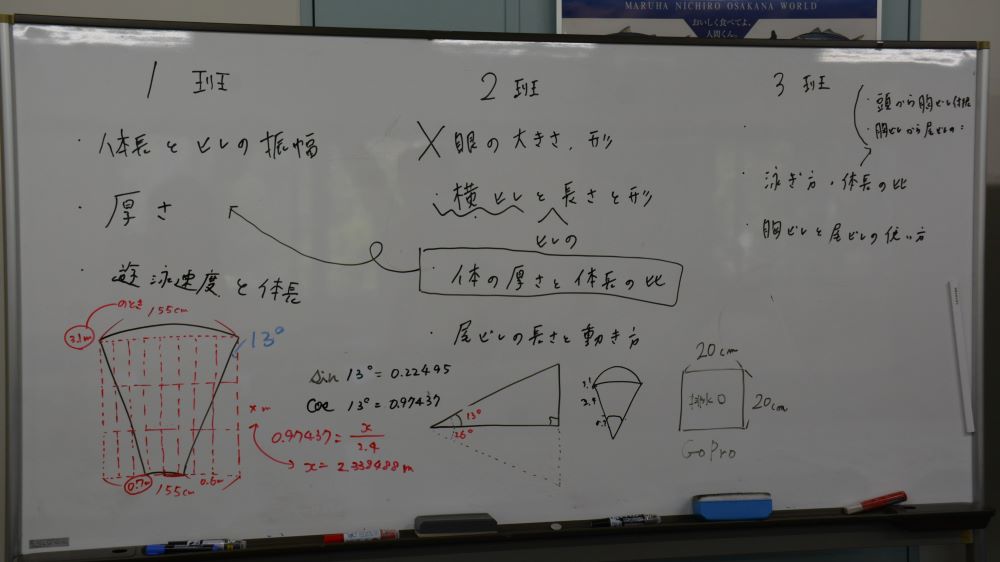 MARUHA NICHIRO OSAKANA WORLD
おいしく食べてよ、
人間くん。
1 班
・体長とヒレの振幅
・厚さ
・遊泳速度と体長
2 班
X 眼の大きさ、形
・横ヒレと長さと形
ヒレの
・体の厚さと体長の比
・尾ビレの長さと動き方
3 班
・頭から胸ビレ
・胸ビレから尾ビレの
・泳ぎ方・体長の比
・胸ビレと尾ビレの使い方
のとき
155cm
3.1m
13°
x m
0.7m
155cm
0.6m
sin 13° = 0.22495
cos 13° = 0.97437
0.97437 = x / 2.4
x = 2.338488 m
13°
26°
3.1
2.4
0.7
20cm
20cm
GoPro